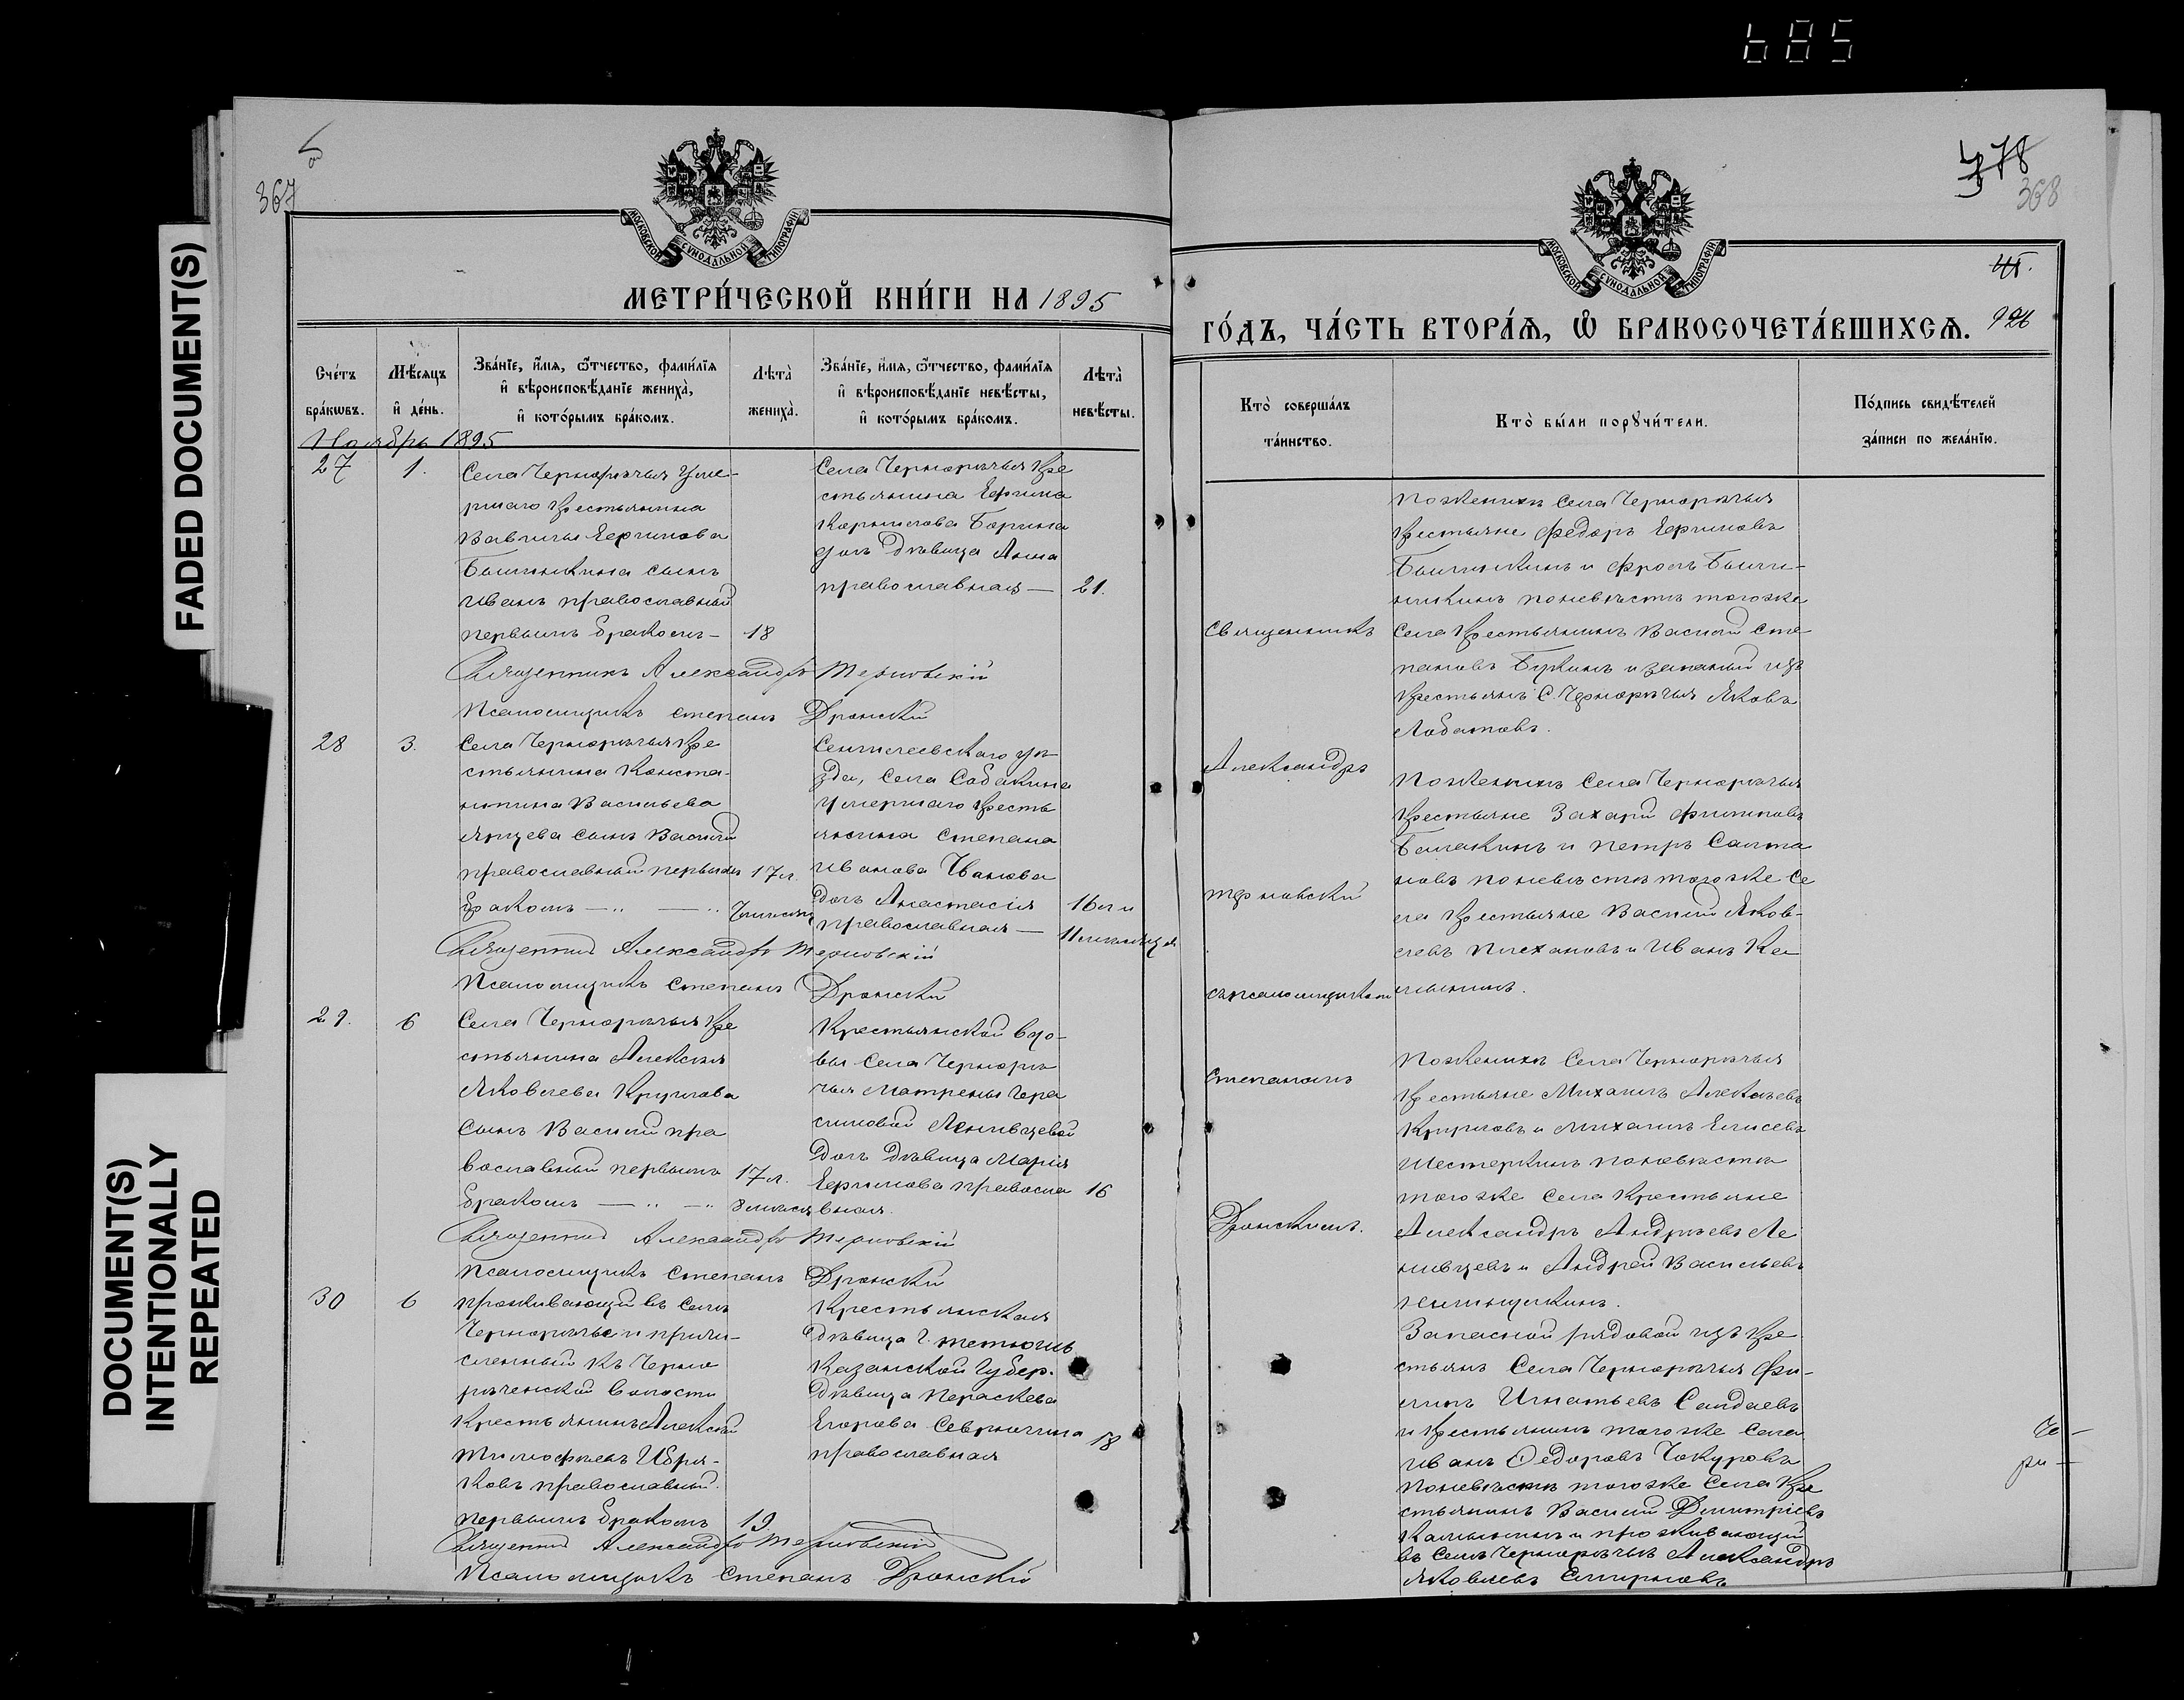 685
FADED DOCUMENT(S)
DOCUMENT(S)
INTENTIONALLY
REPEATED
367
378
368
МОСКОВСКОЙ СѴНОДАЛЬНОЙ ТИПОГРАФІИ
МЕТРИ́ЧЕСКОЙ КНИ́ГИ НА 1895
Сче́тъ
бра́кѡвъ.
Мѣ́сяцъ
и҆ де́нь.
Зва́нїе, и҆́мѧ, ѻ҆́тчество, фами́лїѧ
и҆ вѣроисповѣ́данїе жениха̀,
и҆ кото́рымъ бра́комъ.
Лѣта̀
жениха̀.
Зва́нїе, и҆́мѧ, ѻ҆́тчество, фами́лїѧ
и҆ вѣроисповѣ́данїе невѣ́сты,
и҆ кото́рымъ бра́комъ.
Лѣта̀
невѣ́сты.
Ноябрь 1895
27
1.
Села Чернорѣчья уме-
ршаго крестьянина
Вавилы Ефимова
сынъ
Иванъ православный
первымъ бракомъ —
18
Села Чернорѣчья кре
стьянина Ефима
Корнилова Борина
дочь дѣвица Анна
православная —
21.
Священникъ Александръ Терновскій
Псаломщикъ Степанъ Дронскій
28
3.
Села Чернорѣчья кре
стьянина Конста-
нтина Васильева
сынъ Василій
православный первымъ
бракомъ — " — "
17 л.
Сенгилеевскаго уѣ
зда, села Собакина
умершаго кресть
янина Степана
Иванова
дочь Анастасія
православная —
16 л и
11 мѣсяцев
Священникъ Александръ Терновскій
Псаломщикъ Степанъ Дронскій
29.
6
Села Чернорѣчья кре
стьянина Алексѣя
Яковлева Круглова
сынъ Василій пра
вославный первымъ
бракомъ — " — "
17 л.
8 мѣсяц
Крестьянской вдо-
вы села Чернорѣ
чья Матрены Гера
симовой Ленивцевой
дочь дѣвица Марія
Ефимова правосла
вная.
16
Священникъ Александръ Терновскій
Псаломщикъ Степанъ Дронскій
30
6
Проживающій въ селѣ
Чернорѣчье и причи-
сленный къ Черно
рѣченской волости
крестьянинъ Алексѣй
Тимофѣевъ Ибря-
ковъ православный.
первымъ бракомъ
19.
Крестьянская
дѣвица г. Тетюшъ
Казанской губер.
дѣвица Параскева
Егорова Севрюгина
православная
18
Священникъ Александръ Терновскій
Псаломщикъ Степанъ Дронскій
МОСКОВСКОЙ СѴНОДАЛЬНОЙ ТИПОГРАФІИ
ГО́ДЪ, ЧА́СТЬ ВТОРА́Ѧ, Ѽ БРАКОСОЧЕТА́ВШИХСѦ.
926
Кто̀ соверша́лъ
та́инство.
Кто̀ бы́ли порꙋчи́тели.
По́дпись свидѣ́телей
за́писи по жела́нїю.
Священникъ
Александръ
Терновскій
съ псаломщикомъ
Степаномъ
Дронскимъ.
По женихѣ села Чернорѣчья
крестьяне Федоръ Ефимовъ
и Фролъ
по невѣстѣ тогоже
села крестьянинъ Василій Сте-
пановъ Буркинъ и запасный изъ
крестьянъ с. Чернорѣчья Яковъ
Лобановъ.
По женихѣ села Чернорѣчья
крестьяне Захарій Филиповъ
и Петръ Салта
новъ по невѣстѣ тогоже се
ла крестьяне Василій Яков-
левъ Плехановъ и Иванъ
По женихѣ села Чернорѣчья
крестьяне Михаилъ Алексѣевъ
Кругловъ и Михаилъ Елисевъ
Шестеркинъ по невѣстѣ
тогоже села крестьяне
Александръ Андрѣевъ Ле
нивцевъ и Андрей Васильевъ
Запасной рядовой изъ кре
стьянъ села Чернорѣчья Фи-
липъ Игнатьевъ Сандаевъ
и крестьянинъ тогоже села
Иванъ Ѳедоровъ Чокуровъ
по невѣстѣ тогоже села кре
стьянинъ Василій Димитріевъ
и проживающій
въ селѣ Чернорѣчьѣ Александръ
Яковлевъ Смирновъ
Че —
ри —